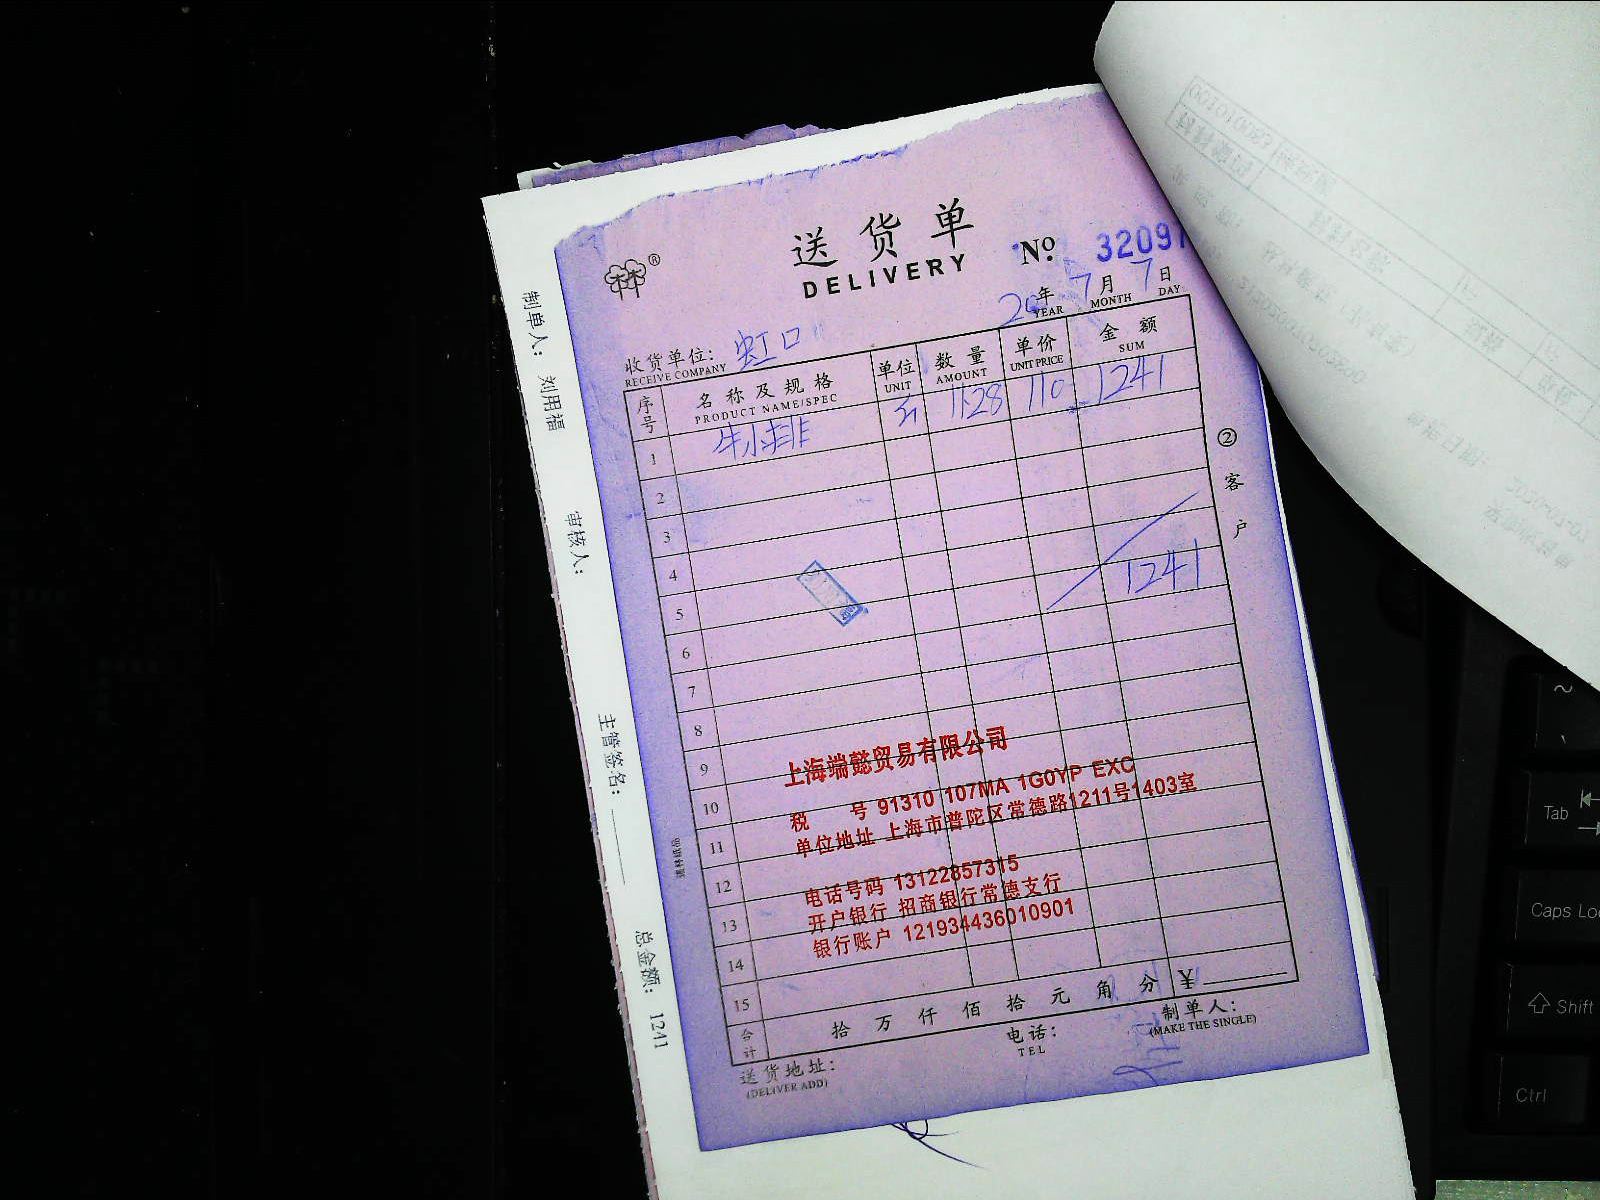 送货单
DELIVERY
№ 32097
20年7月7日
YEAR MONTH DAY
收货单位: 虹口
RECEIVE COMPANY
序号 名称及规格 单位 数量 单价 金额
PRODUCT NAME/SPEC UNIT AMOUNT UNIT PRICE SUM
1 牛小排 11.28 110 1241
2
3
4
5 1241
6
7
8
9
10
11
12
13
14
15
上海端懿贸易有限公司
税 号 91310 107MA 1G0YP EXC
单位地址 上海市普陀区常德路1211号1403室
电话号码 13122857315
开户银行 招商银行常德支行
银行账户 121934436010901
合计 拾 万 仟 佰 拾 元 角 分 ¥
送货地址:
(DELIVER ADD)
电话:
TEL
制单人:
(MAKE THE SINGLE)
②客户
制单人: 刘用福 审核人: 主管签名: 总金额: 1241
Tab
Caps Loc
Shift
Ctrl